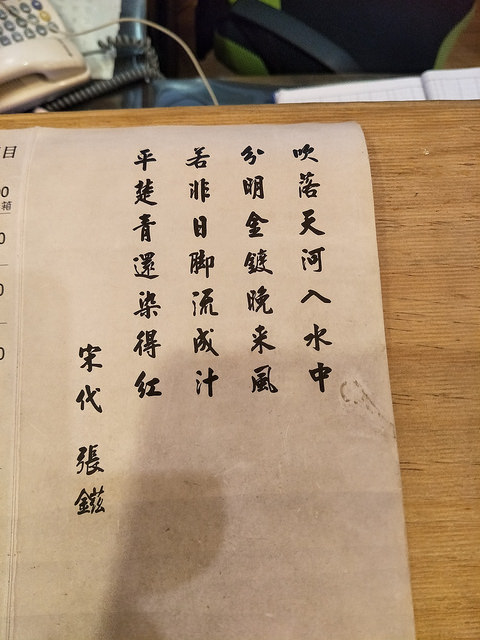 吹落天河入水中
分明金鍍晚来風
若非日脚流成汁
平楚青還染得紅
宋代 張鎡
目
0
箱
0
0
0